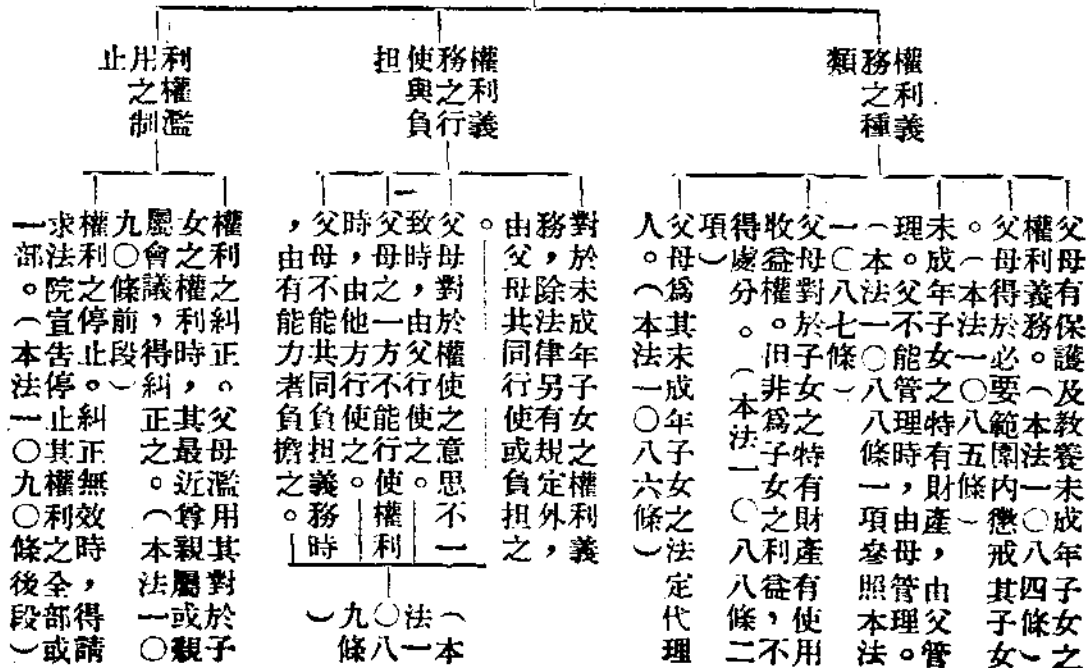 權利義
務之種
類
父母有保護及教養未成年子女之
權利義務。（本法一〇八四條）
父母得於必要範圍內懲戒其子女
。（本法一〇八五條）
未成年子女之特有財產，由父管
理。父不能管理時，由母管理。
（本法一〇八八條一項參照本法
一〇八七條）
父母對於子女之特有財產有使用
收益權。但非爲子女之利益，不
得處分。（本法一〇八八條二
項）
父母爲其未成年子女之法定代理
人。（本法一〇八六條）
權利義
務之行
使與負
担
對於未成年子女之權利義
務，除法律另有規定外，
由父母共同行使或負担之
。
父母對於權使之意思不一
致時，由父行使之。
父母之一方不能行使權利
時，由他方行使之。
父母不能共同負担義務時
，由有能力者負擔之。
（本
法一
〇八
九條
）
利權濫
用之制
止
權利之糾正。父母濫用其對於子
女之權利時，其最近尊親屬或親
屬會議，得糾正之。（本法一〇
九〇條前段）
權利之停止。糾正無效時，得請
求法院宣告停止其權利之全部或
一部。（本法一〇九〇條後段）